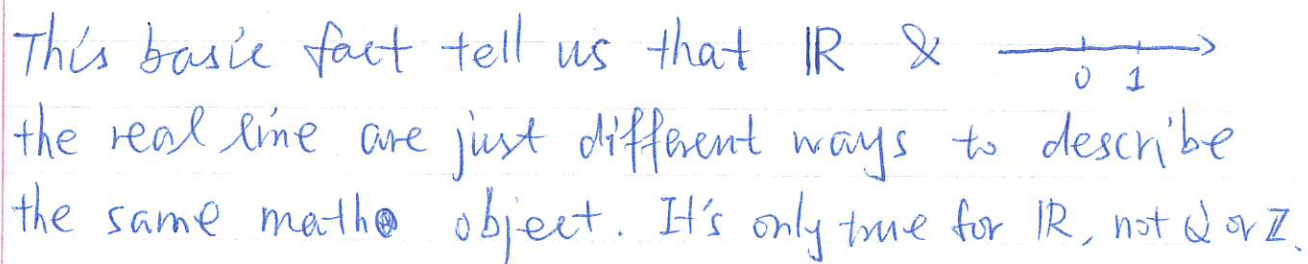 This basic fact tell us that ℝ & 0 1
the real line are just different ways to describe
the same math object. It's only true for ℝ, not ℚ or ℤ.